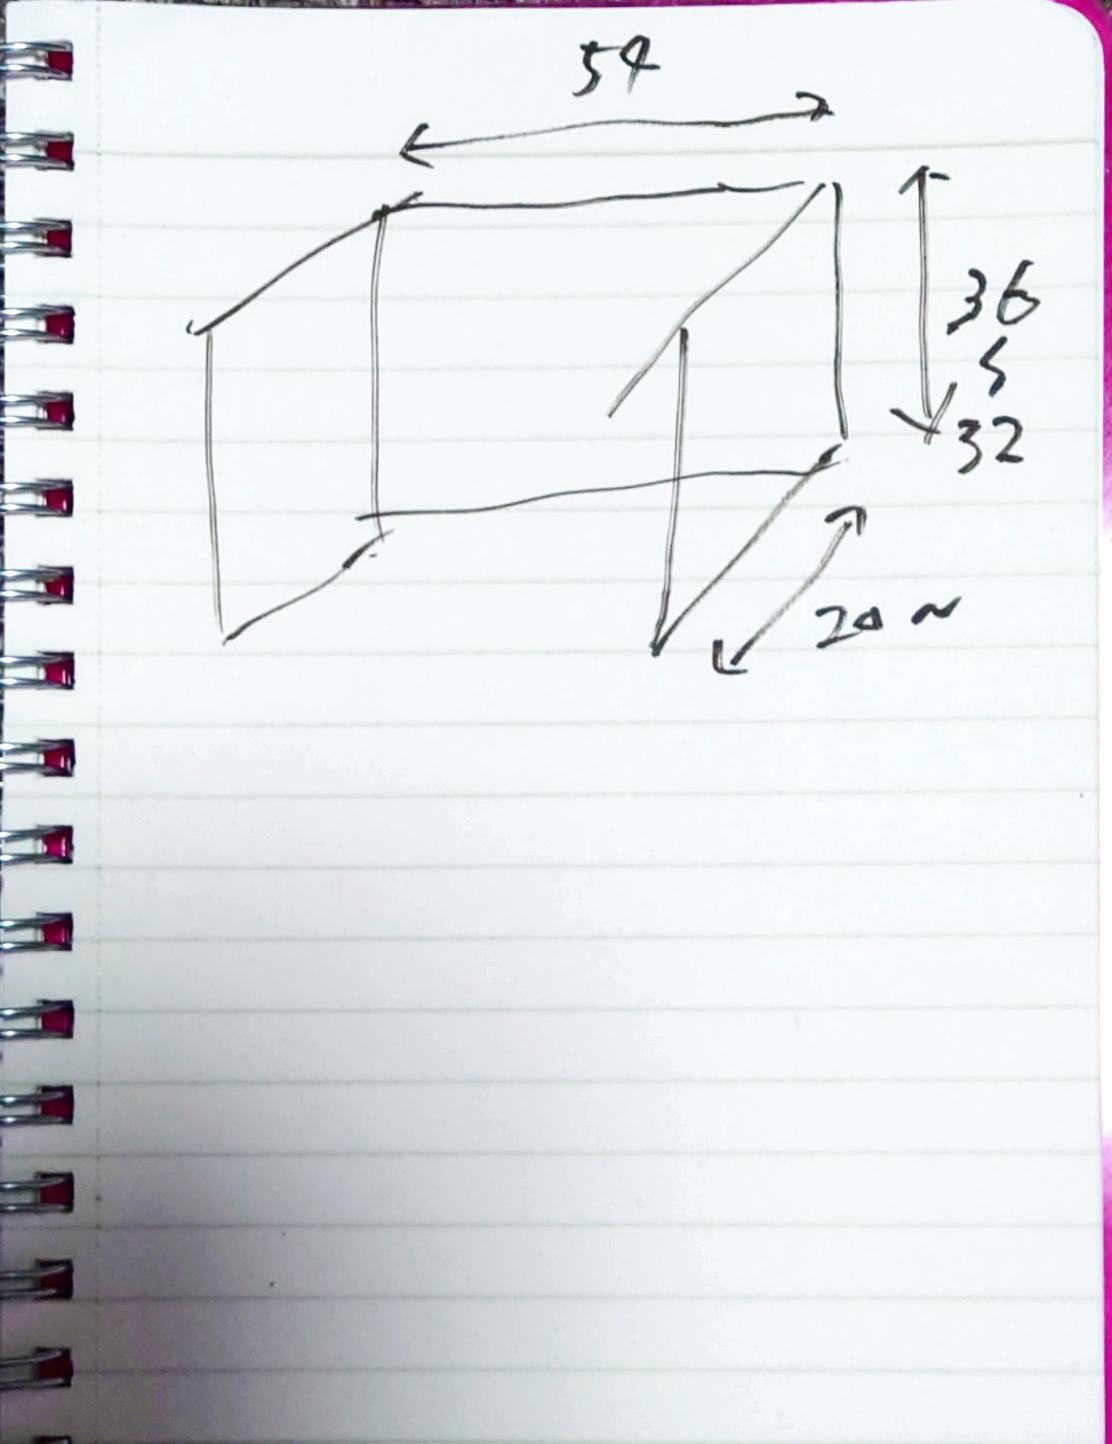 54
36
S
32
20~